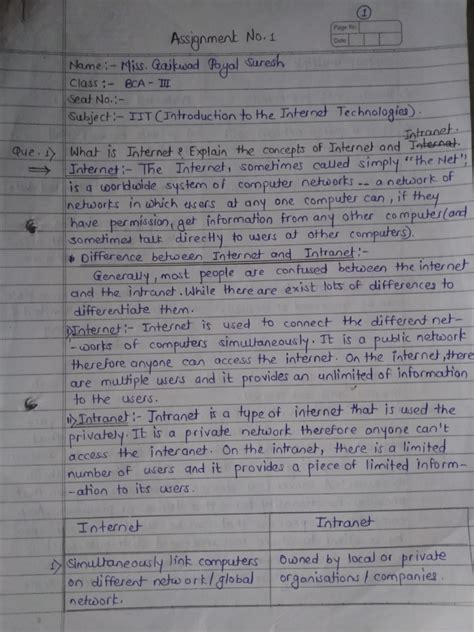 1
Page No.
Date
Assignment No. 1
Name:- Miss. Gaikwad Payal Suresh
Class :- BCA - III
Seat No.:-
Subject:- IIT (Introduction to the Internet Technologies).
Intranet.
Que. 1) What is Internet & Explain the concepts of Internet and Internet.
Internet:- The Internet, sometimes called simply "the Net",
is a worldwide system of computer networks -- a network of
networks in which users at any one computer can, if they
have permission, get information from any other computer (and
sometimes talk directly to users at other computers).
* Difference between Internet and Intranet:-
Generally, most people are confused between the internet
and the intranet. While there are exist lots of differences to
differentiate them.
i) Internet:- Internet is used to connect the different net-
-works of computers simultaneously. It is a public network
therefore anyone can access the internet. On the internet, there
are multiple users and it provides an unlimited of information
to the users.
ii) Intranet:- Intranet is a type of internet that is used the
privately. It is a private network therefore anyone can't
access the interanet. On the intranet, there is a limited
number of users and it provides a piece of limited inform-
-ation to its users.
Internet Intranet
1) Simultaneously link computers Owned by local or private
on different network/global organisations / companies.
network.